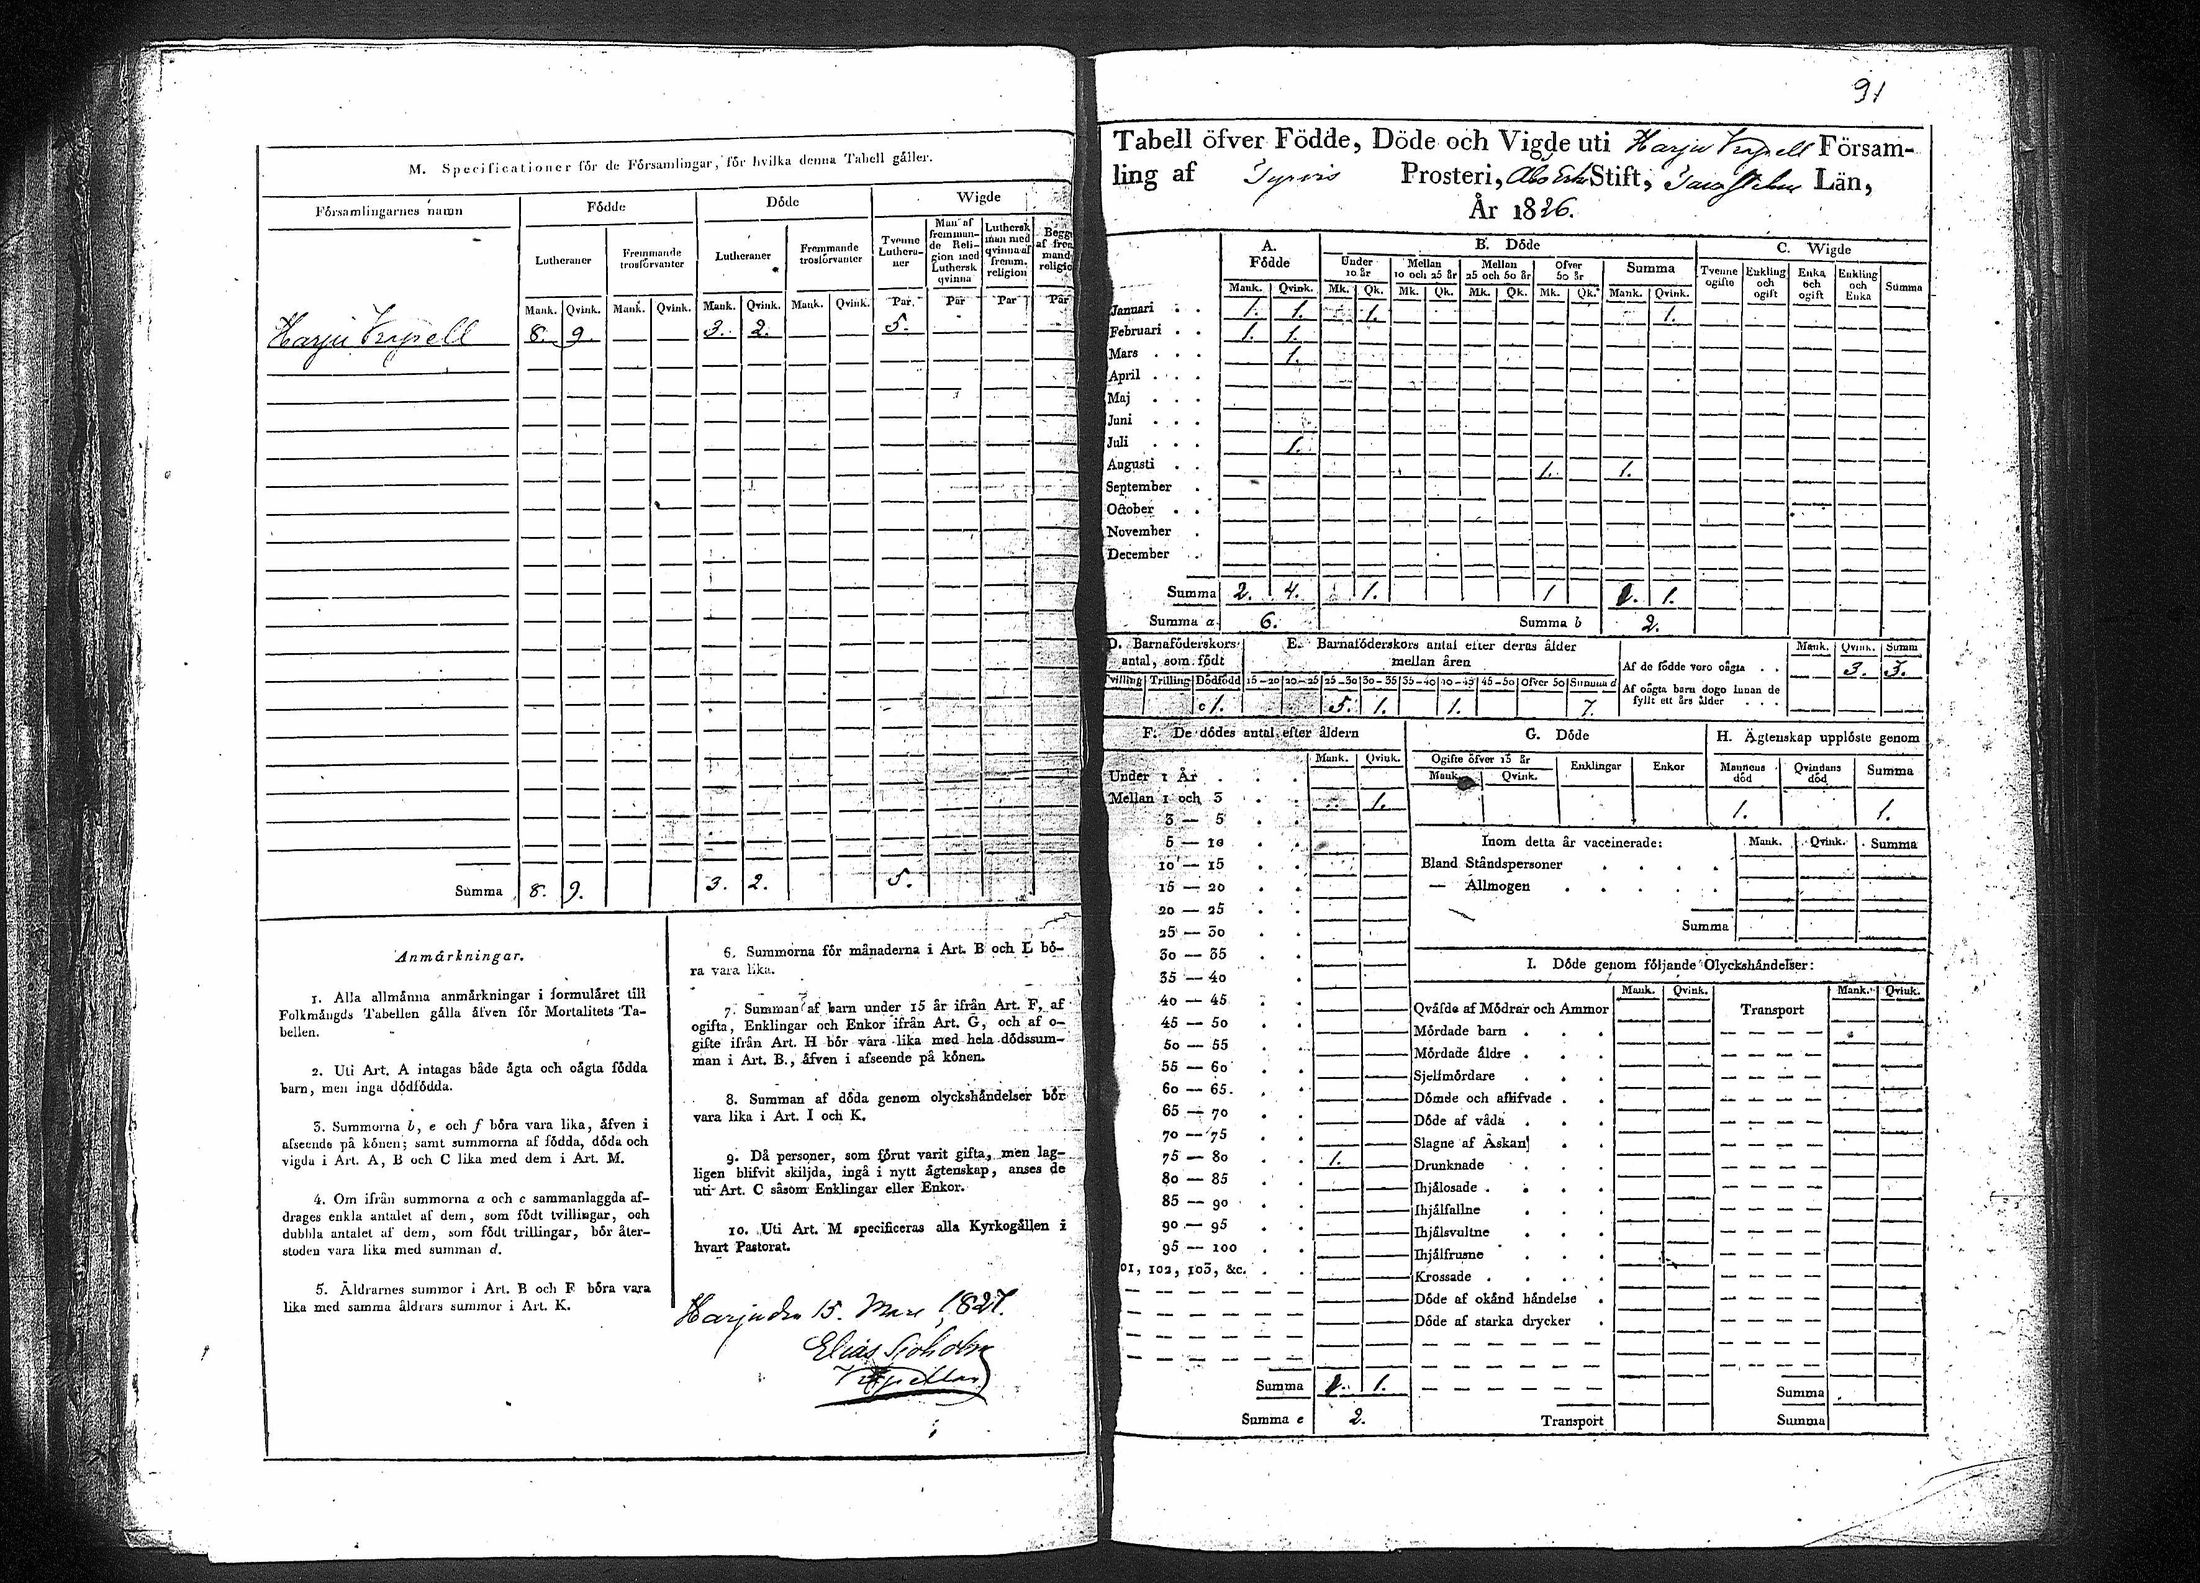 M. Specificationer för de Församlingar, för hvilka denna Tabell gäller.
Församlingarnes namn
Födde
Döde
Wigde
Lutheraner
Fremmande trosförvanter
Lutheraner
Fremmande trosförvanter
Tvenne Lutheraner
Man af fremmande Religion med Luthersk qvinna
Luthersk man med qvinna af fremm. religion
Mank. Qvink. Mank. Qvink. Mank. Qvink. Mank. Qvink. Par. Par Par Par
Harju Kapell 8. 9. 3. 2. 5.
Summa 8. 9. 3. 2. 5.
Anmärkningar.
1. Alla allmänna anmärkningar i formuläret till
Folkmängds Tabellen gälla äfven för Mortalitets Ta-
bellen.
2. Uti Art. A intagas både ägta och oägta födda
barn, men inga dödfödda.
3. Summorna b, e och f böra vara lika, äfven i
afseende på könen; samt summorna af födda, döda och
vigda i Art. A, B och C lika med dem i Art. M.
4. Om ifrån summorna a och c sammanlaggda af-
drages enkla antalet af dem, som födt tvillingar, och
dubbla antalet af dem, som födt trillingar, bör åter-
stoden vara lika med summan d.
5. Åldrarnes summor i Art. B och F böra vara
lika med samma åldrars summor i Art. K.
6. Summorna för månaderna i Art. B och L bö-
ra vara lika.
7. Summan af barn under 15 år ifrån Art. F, af
ogifta, Enklingar och Enkor ifrån Art. G, och af o-
gifte ifrån Art. H bör vara lika med hela dödssum-
man i Art. B., äfven i afseende på könen.
8. Summan af döda genom olyckshändelser bör
vara lika i Art. I och K.
9. Då personer, som förut varit gifta, men lag-
ligen blifvit skiljda, ingå i nytt ägtenskap, anses de
uti Art. C såsom Enklingar eller Enkor.
10. Uti Art. M specificeras alla Kyrkogällen i
hvart Pastorat.
Harju den 15. Mars 1827.
Elias Sjöholm
Kapellan
91
Tabell öfver Födde, Döde och Vigde uti Harju Kapell Försam-
ling af Tyrvis Prosteri, Åbo Erke Stift, Län,
År 1826.
A. Födde
B. Döde
C. Wigde
Under 10 år
Mellan 10 och 25 år
Mellan 25 och 50 år
Öfver 50 år
Summa
Tvenne ogifte
Enkling och ogift
Enka och ogift
Enkling och Enka
Summa
Mank. Qvink. Mk. Qk. Mk. Qk. Mk. Qk. Mk. Qk. Mank. Qvink.
Januari 1. 1. 1. 1.
Februari 1. 1.
Mars 1.
April
Maj
Juni
Juli 1.
Augusti 1. 1.
September
October
November
December
Summa 2. 4. 1. 1 1. 1.
Summa a 6. Summa b 2.
D. Barnaföderskors antal, som födt
Tvilling Trilling Dödfödd
c 1.
E. Barnaföderskors antal efter deras ålder mellan åren
15-20 20-25 25-30 30-35 35-40 40-45 45-50 Öfver 50 Summa d
5. 1. 1. 7.
Mank. Qvink. Summ
Af de födde voro oägta 3. 3.
Af oägta barn dogo innan de
fyllt ett års ålder
F. De dödes antal efter åldern
Mank. Qvink.
Under 1 År
Mellan 1 och 3 1.
3 — 5
5 — 10
10 — 15
15 — 20
20 — 25
25 — 30
30 — 35
35 — 40
40 — 45
45 — 50
50 — 55
55 — 60
60 — 65.
65 — 70
70 — 75
75 — 80 1.
80 — 85
85 — 90
90 — 95
95 — 100
01, 102, 103, &c.
Summa 1. 1.
Summa e 2.
G. Döde
Ogifte öfver 15 år
Mank. Qvink.
Enklingar
Enkor
H. Ägtenskap upplöste genom
Mannens död
Qvinnans död
Summa
1. 1.
Inom detta år vaccinerade: Mank. Qvink. Summa
Bland Ståndspersoner
— Allmogen
Summa
I. Döde genom följande Olyckshändelser:
Mank. Qvink. Mank. Qvink.
Qväfde af Mödrar och Ammor Transport
Mördade barn
Mördade äldre
Sjelfmördare
Dömde och aflifvade
Döde af våda
Slagne af Åskan
Drunknade
Ihjälosade
Ihjälfallne
Ihjälsvultne
Ihjälfrusne
Krossade
Döde af okänd händelse
Döde af starka drycker
Summa
Transport Summa